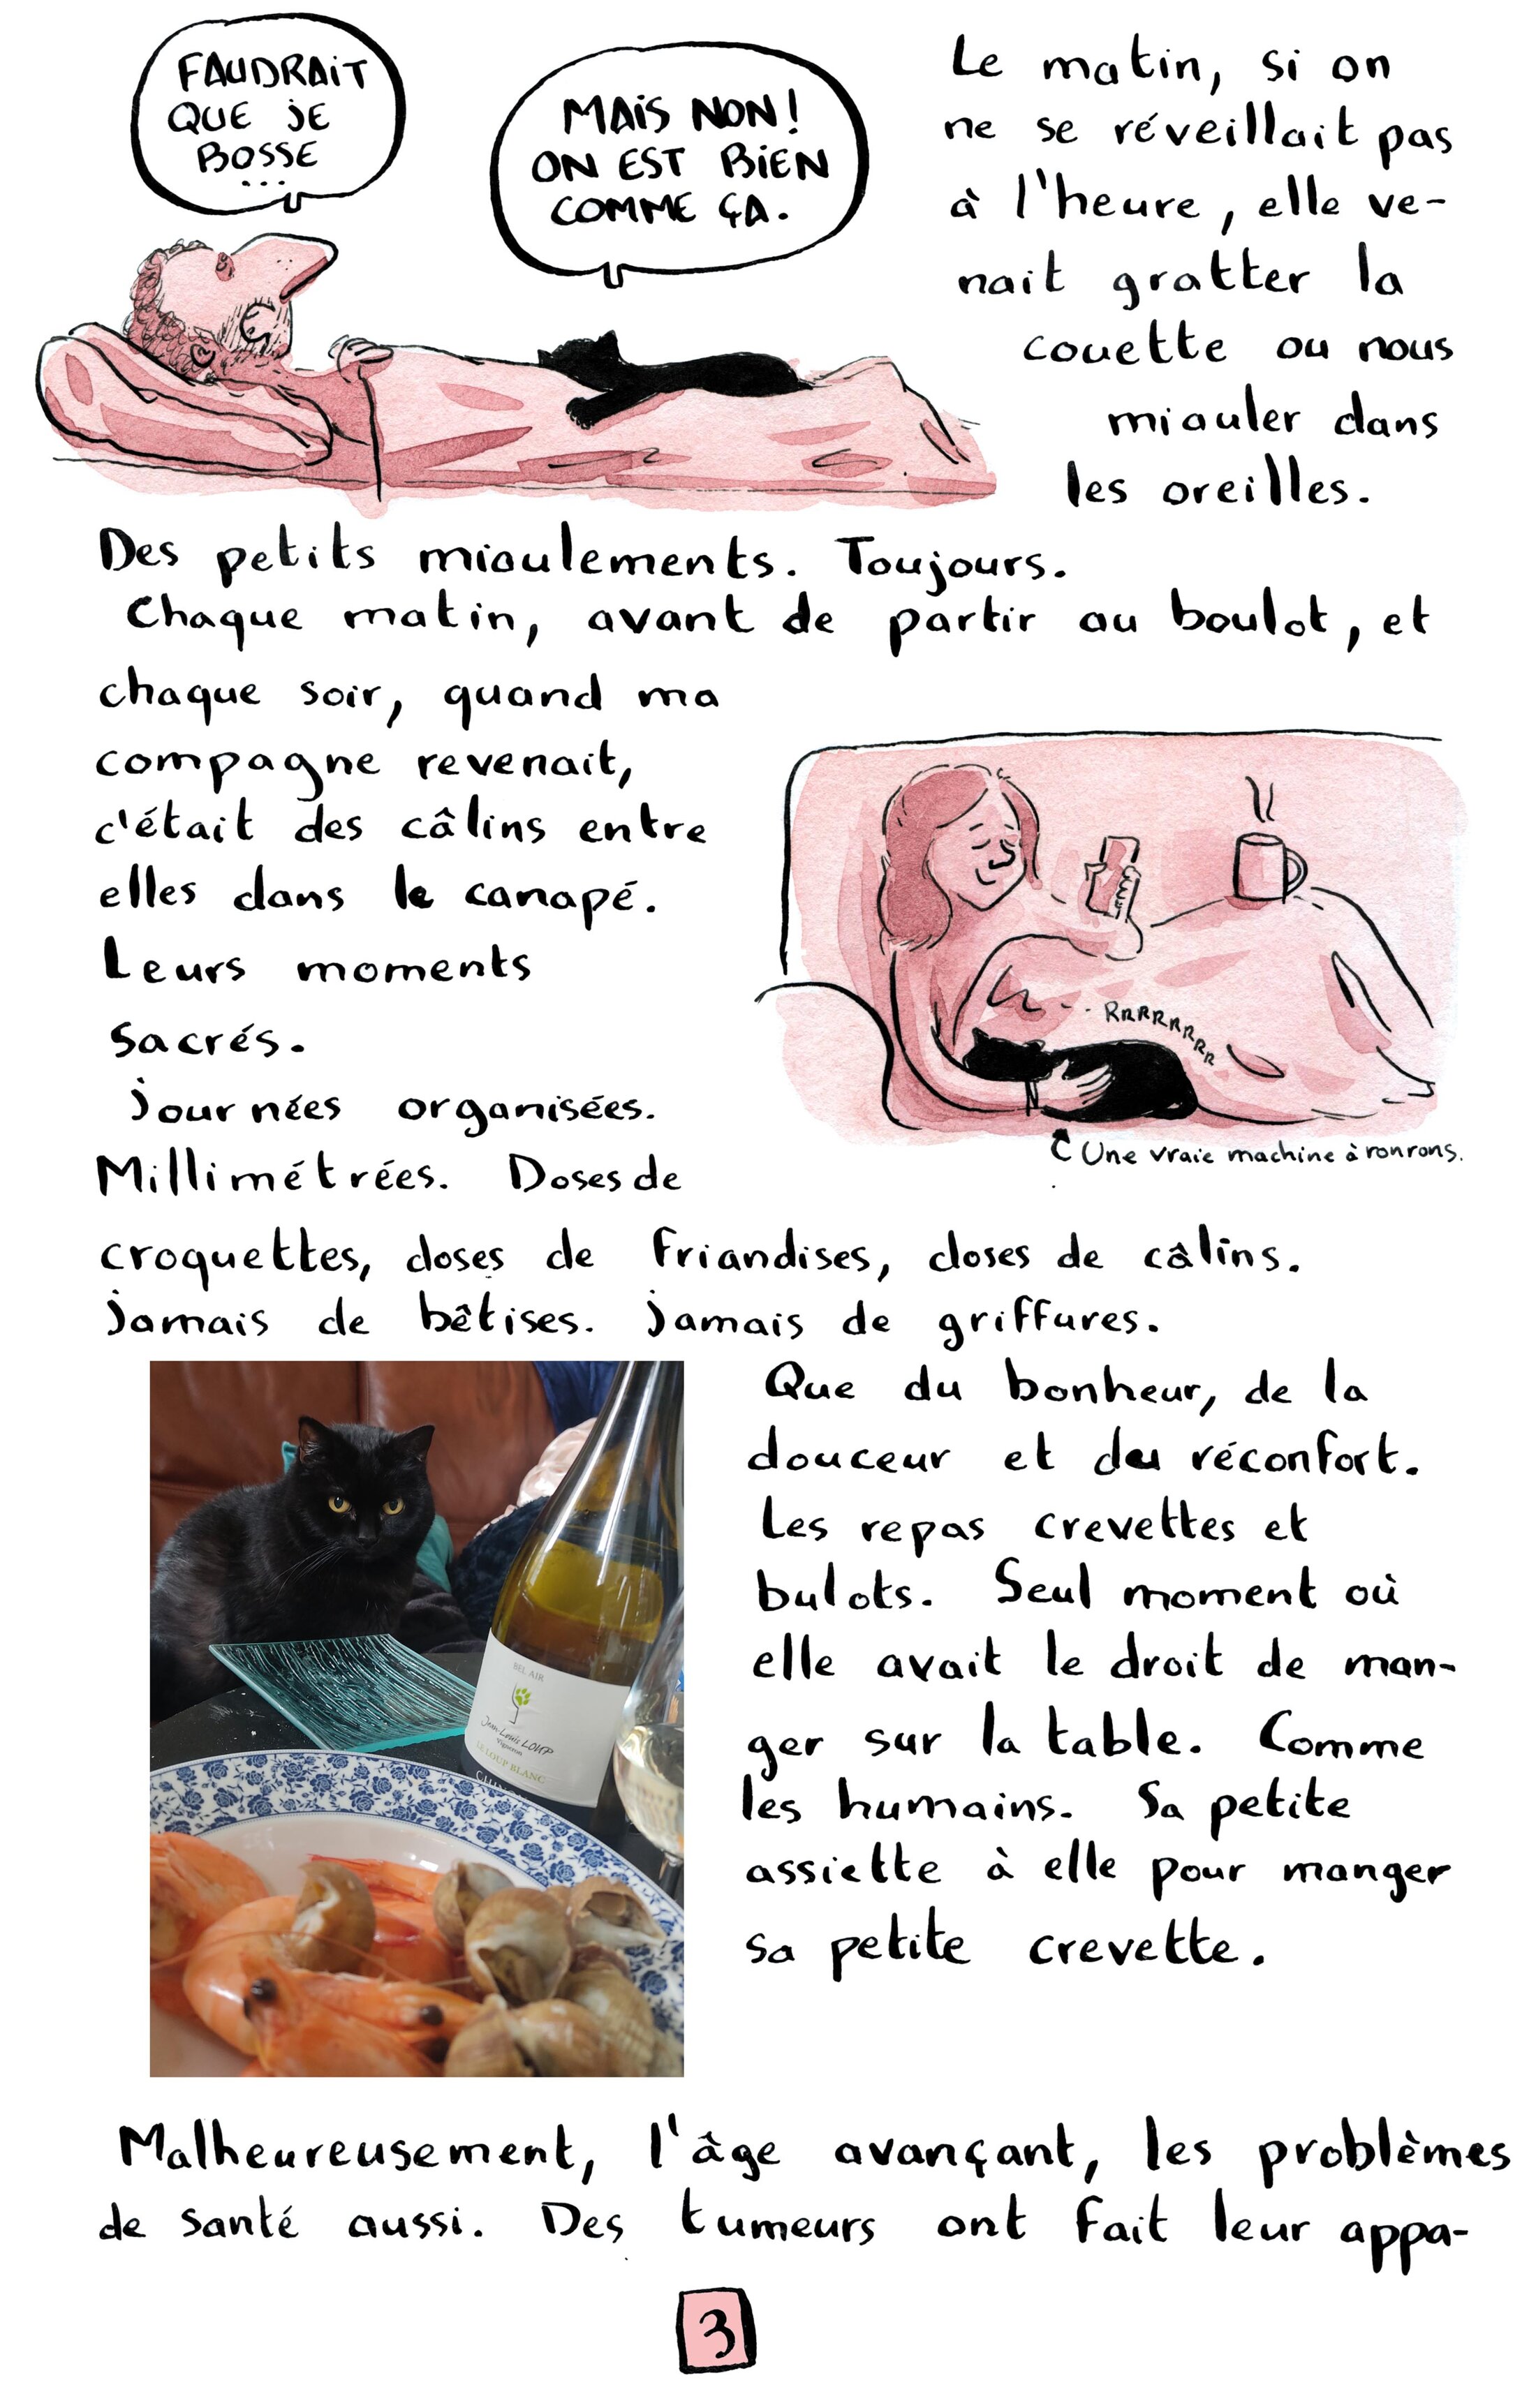 FAUDRAIT
QUE JE
BOSSE
...
MAIS NON!
ON EST BIEN
COMME ÇA.
Le matin, si on
ne se réveillait pas
à l'heure, elle ve-
nait gratter la
couette ou nous
miauler dans
les oreilles.
Des petits miaulements. Toujours.
Chaque matin, avant de partir au boulot, et
chaque soir, quand ma
compagne revenait,
c'était des câlins entre
elles dans le canapé.
Leurs moments
sacrés.
Journées organisées.
Millimétrées. Doses de
RRRRRRRR
Une vraie machine à ronrons.
croquettes, doses de friandises, doses de câlins.
Jamais de bêtises. Jamais de griffures.
Que du bonheur, de la
douceur et du réconfort.
Les repas crevettes et
bulots. Seul moment où
elle avait le droit de man-
ger sur la table. Comme
les humains. Sa petite
assiette à elle pour manger
sa petite crevette.
BEL AIR
Jean-Louis LOUP
Vigneron
LE LOUP BLANC
Malheureusement, l'âge avançant, les problèmes
de santé aussi. Des tumeurs ont fait leur appa-
3